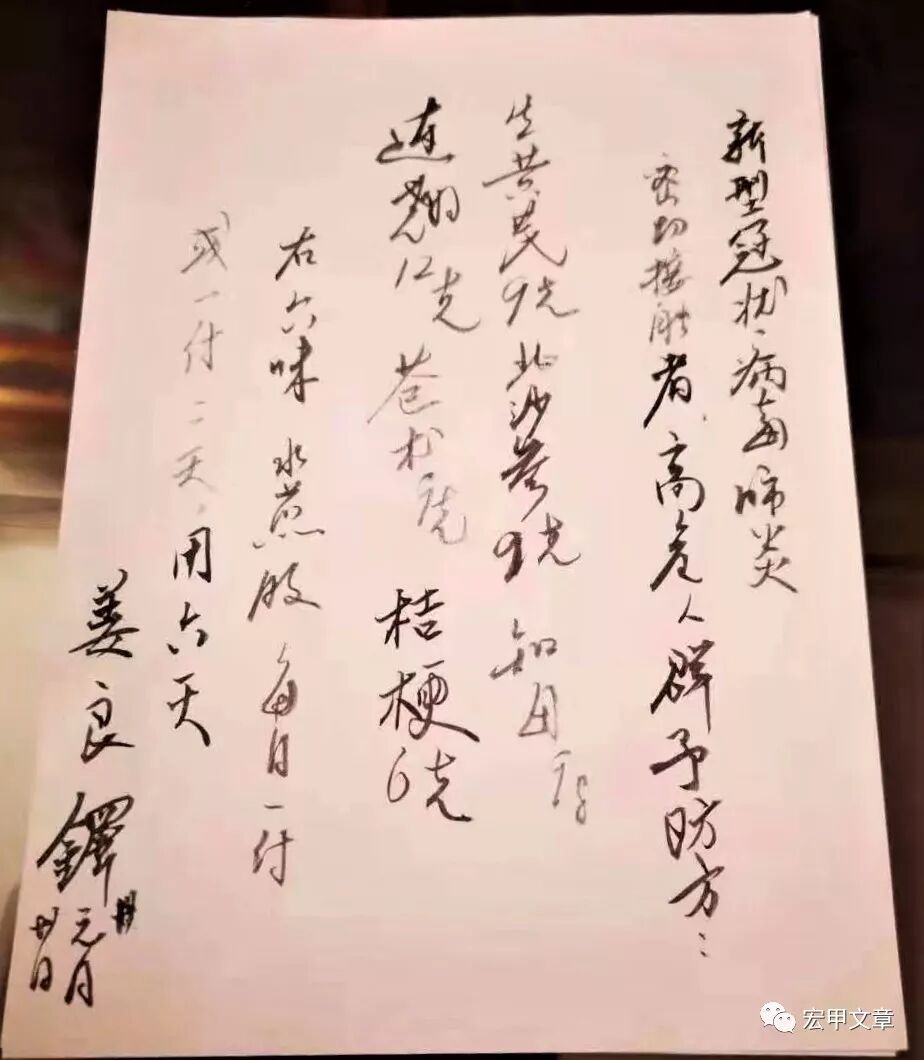 新型冠状病毒肺炎
密切接触者、高危人群予防方:
生黄芪9克 北沙参9克 知母
连翘12克 苍术 桔梗6克
右六味 水煎服 每日一付
或一付二天,用六天
姜良铎
元月
日
宏甲文章